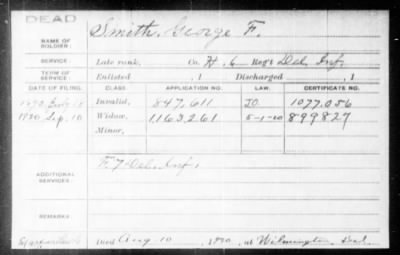 DEAD
NAME OF SOLDIER: Smith, George F.
SERVICE: Late rank, Co. H. 6 Reg't Del. Inf.
TERM OF SERVICE: Enlisted , 1 Discharged , 1
DATE OF FILING. CLASS. APPLICATION NO. LAW. CERTIFICATE NO.
1890 July 18 Invalid, 847,611 1077,056
1920 Sep. 10 Widow, 1163261 5-1-20 899827
Minor,
ADDITIONAL SERVICES: F. 7 Del. Inf.
REMARKS:
Died Aug 10 , 1920, at Wilmington, Del.